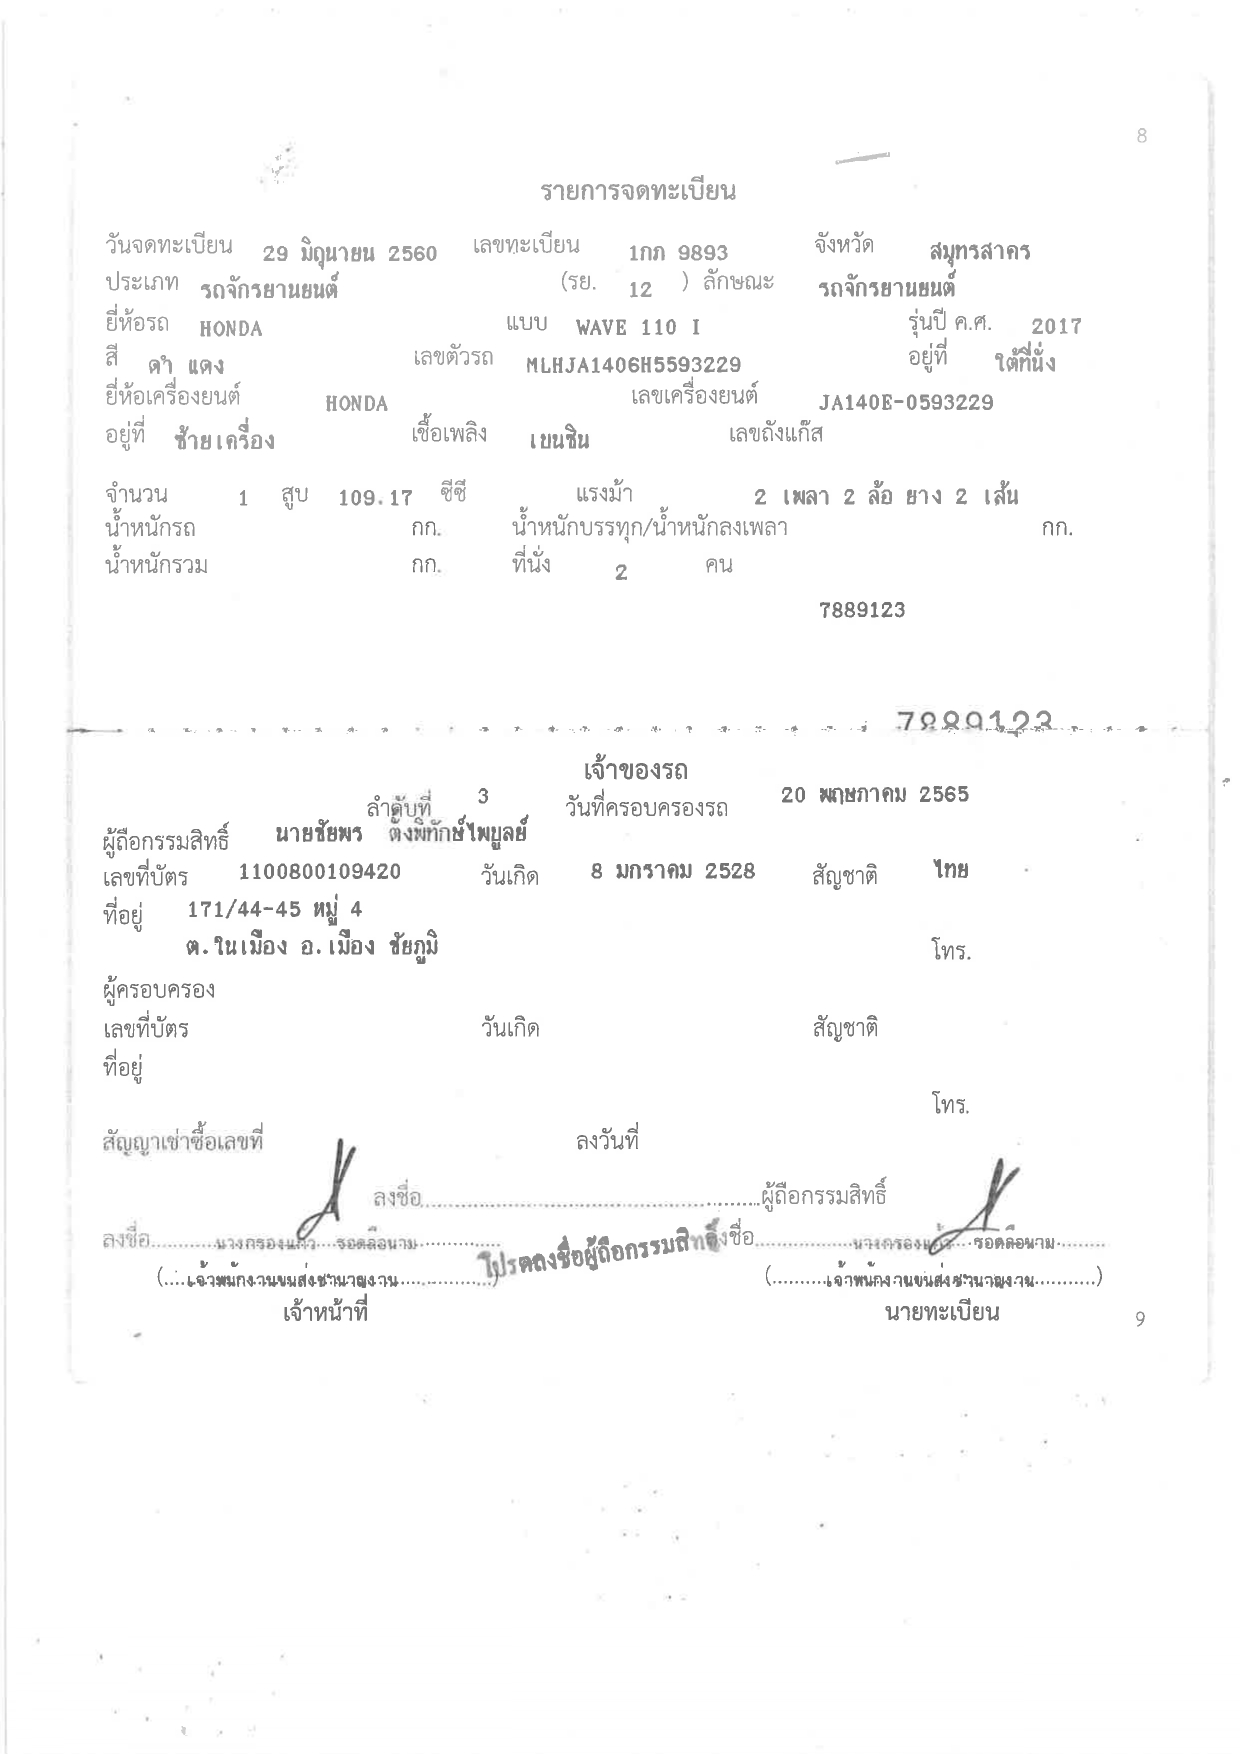 8
รายการจดทะเบียน
วันจดทะเบียน 29 มิถุนายน 2560 เลขทะเบียน 1กก 9893 จังหวัด สมุทรสาคร
ประเภท รถจักรยานยนต์ (รย. 12 ) ลักษณะ รถจักรยานยนต์
ยี่ห้อรถ HONDA แบบ WAVE 110 I รุ่นปี ค.ศ. 2017
สี ดำ แดง เลขตัวรถ MLHJA1406H5593229 อยู่ที่ ใต้ที่นั่ง
ยี่ห้อเครื่องยนต์ HONDA เลขเครื่องยนต์ JA140E-0593229
อยู่ที่ ซ้ายเครื่อง เชื้อเพลิง เบนซิน เลขถังแก๊ส
จำนวน 1 สูบ 109.17 ซีซี แรงม้า 2 เพลา 2 ล้อ ยาง 2 เส้น
น้ำหนักรถ กก. น้ำหนักบรรทุก/น้ำหนักลงเพลา กก.
น้ำหนักรวม กก. ที่นั่ง 2 คน
7889123
7889123
เจ้าของรถ
ลำดับที่ 3 วันที่ครอบครองรถ 20 พฤษภาคม 2565
ผู้ถือกรรมสิทธิ์ นายชัยพร ตั้งพิทักษ์ไพบูลย์
เลขที่บัตร 1100800109420 วันเกิด 8 มกราคม 2528 สัญชาติ ไทย
ที่อยู่ 171/44-45 หมู่ 4
ต.ในเมือง อ.เมือง ชัยภูมิ โทร.
ผู้ครอบครอง
เลขที่บัตร วันเกิด สัญชาติ
ที่อยู่
โทร.
สัญญาเช่าซื้อเลขที่ ลงวันที่
ลงชื่อ....................ผู้ถือกรรมสิทธิ์
ลงชื่อ..........นางกรองแก้ว รอดลือนาม.......... โปรดลงชื่อผู้ถือกรรมสิทธิ์ ลงชื่อ..........นางกรองแก้ว รอดลือนาม..........
(....เจ้าพนักงานขนส่งชำนาญงาน..........) (..........เจ้าพนักงานขนส่งชำนาญงาน..........)
เจ้าหน้าที่ นายทะเบียน
9